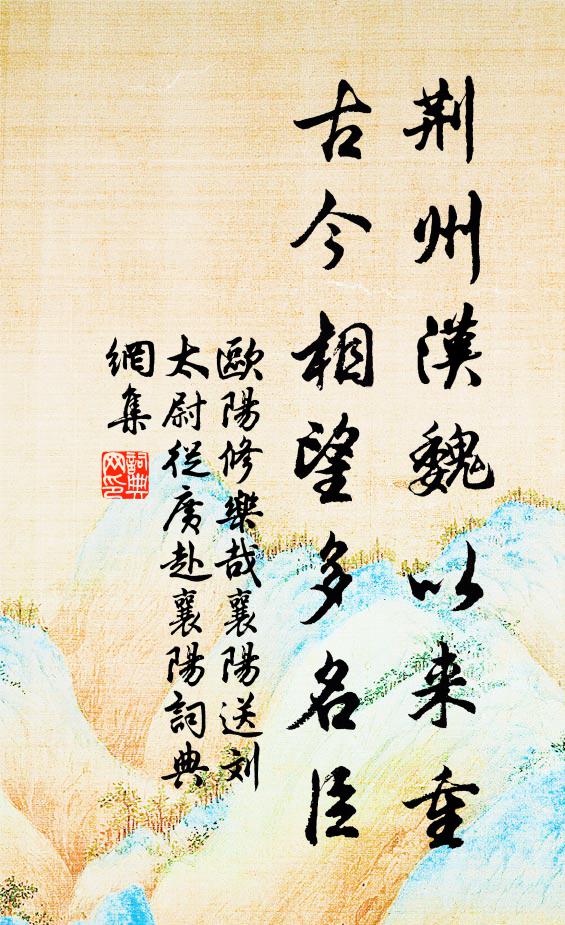 荆州漢魏以来重
古今相望多名臣
歐陽修樂哉襄陽送刘
太尉從廣赴襄陽詞典
網集
詞典
网印